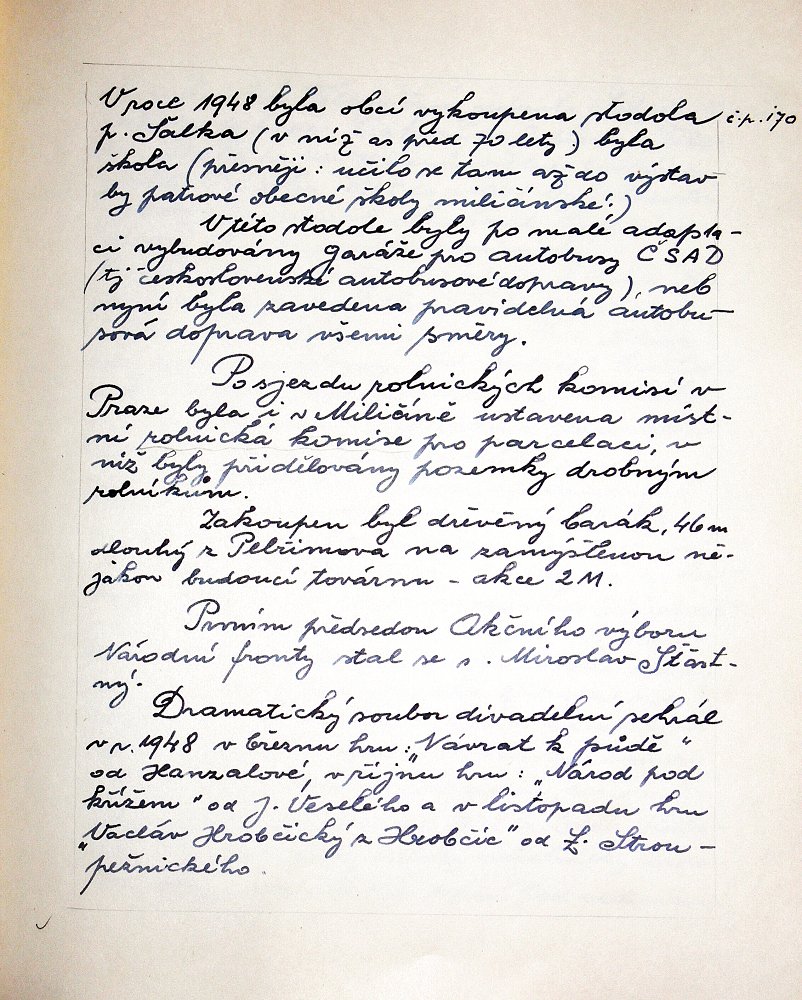 V roce 1948 byla obcí vykoupena stodola č.p. 170
p. Šálka (v níž as před 70 lety) byla
škola (přesněji: učilo se tam až do výstav
by patrové obecné školy miličínské.)
V této stodole byly po malé adapta-
ci vybudovány garáže pro autobusy ČSAD
(tj československé autobusové dopravy), neb
nyní byla zavedena pravidelná autobu-
sová doprava všemi směry.
Po sjezdu rolnických komisí v
Praze byla i v Miličíně ustavena míst-
ní rolnická komise pro parcelaci, v
níž byly přidělovány pozemky drobným
rolníkům.
Zakoupen byl dřevěný barák, 46 m
dlouhý z Pelřimova na zamýšlenou ně-
jakou budoucí továrnu - akce 2 M.
Prvním předsedou Akčního výboru
Národní fronty stal se s. Miroslav Šťast-
ný.
Dramatický soubor divadelní sehrál
v r. 1948 v březnu hru: „Návrat k půdě“
od Hanzalové, v říjnu hru: „Národ pod
křížem“ od J. Veselého a v listopadu hru
„Václav Hrobčický z Hrobčic“ od L. Strou-
pežnického.